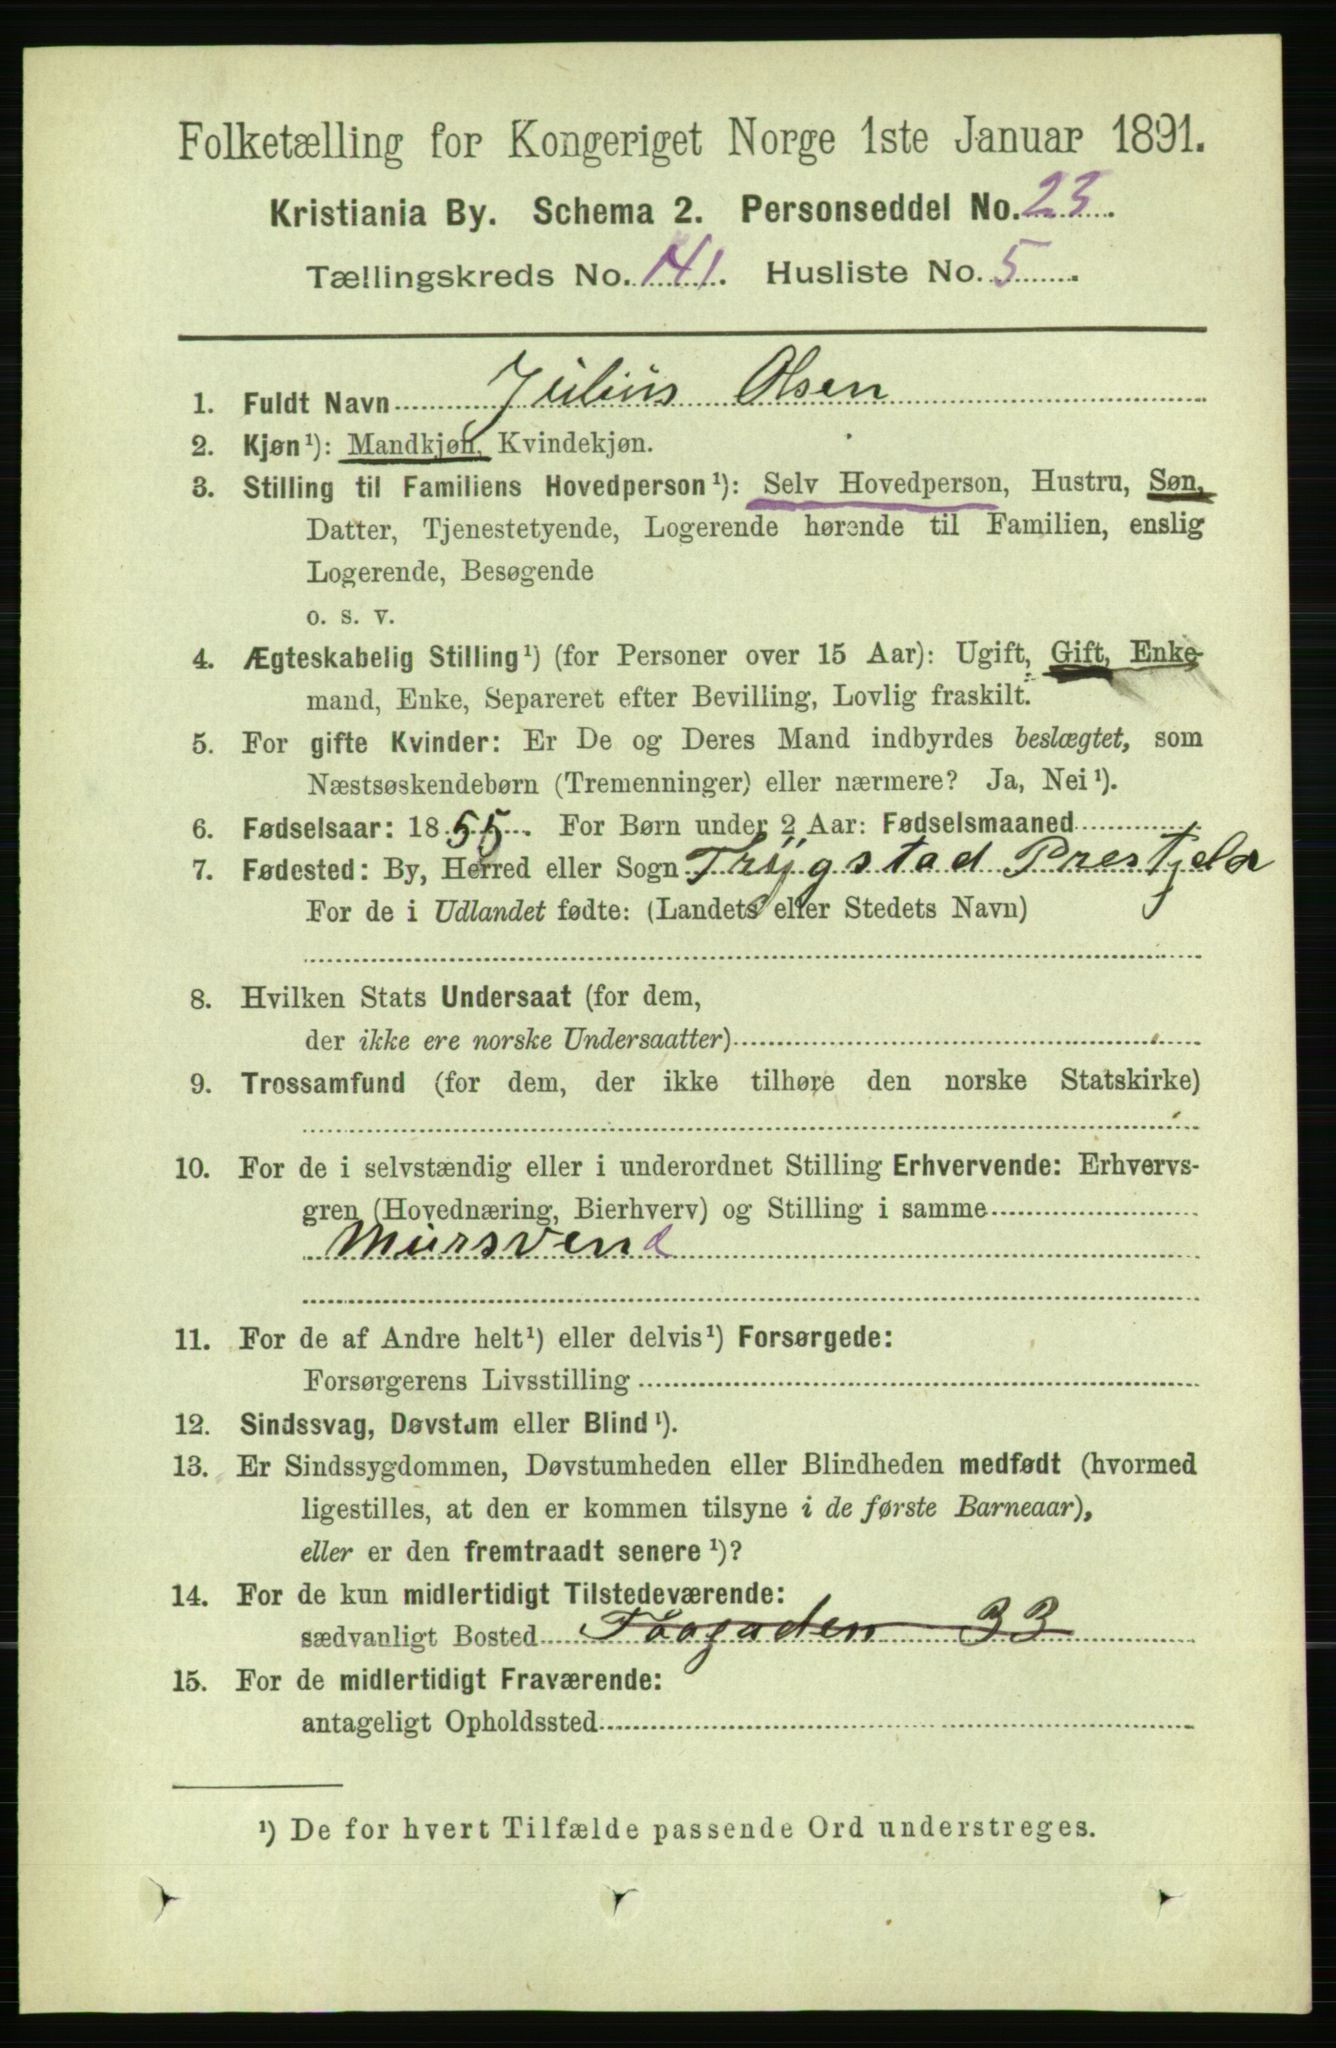 Folketælling for Kongeriget Norge 1ste Januar 1891.
Kristiania By. Schema 2. Personseddel No. 23
Tællingskreds No. 141. Husliste No. 5
1. Fuldt Navn Julius Olsen
2. Kjøn¹): Mandkjøn, Kvindekjøn.
3. Stilling til Familiens Hovedperson¹): Selv Hovedperson, Hustru, Søn,
Datter, Tjenestetyende, Logerende hørende til Familien, enslig
Logerende, Besøgende
o. s. v.
4. Ægteskabelig Stilling¹) (for Personer over 15 Aar): Ugift, Gift, Enke-
mand, Enke, Separeret efter Bevilling, Lovlig fraskilt.
5. For gifte Kvinder: Er De og Deres Mand indbyrdes beslægtet, som
Næstsøskendebørn (Tremenninger) eller nærmere? Ja, Nei¹).
6. Fødselsaar: 1855. For Børn under 2 Aar: Fødselsmaaned
7. Fødested: By, Herred eller Sogn Trygstad Prestjeld
For de i Udlandet fødte: (Landets eller Stedets Navn)
8. Hvilken Stats Undersaat (for dem,
der ikke ere norske Undersaatter)
9. Trossamfund (for dem, der ikke tilhøre den norske Statskirke)
10. For de i selvstændig eller i underordnet Stilling Erhvervende: Erhvervs-
gren (Hovednæring, Bierhverv) og Stilling i samme
Mursvend
11. For de af Andre helt¹) eller delvis¹) Forsørgede:
Forsørgerens Livsstilling
12. Sindssvag, Døvstum eller Blind¹).
13. Er Sindssygdommen, Døvstumheden eller Blindheden medfødt (hvormed
ligestilles, at den er kommen tilsyne i de første Barneaar),
eller er den fremtraadt senere¹)?
14. For de kun midlertidigt Tilstedeværende:
sædvanligt Bosted 33
15. For de midlertidigt Fraværende:
antageligt Opholdssted
¹) De for hvert Tilfælde passende Ord understreges.